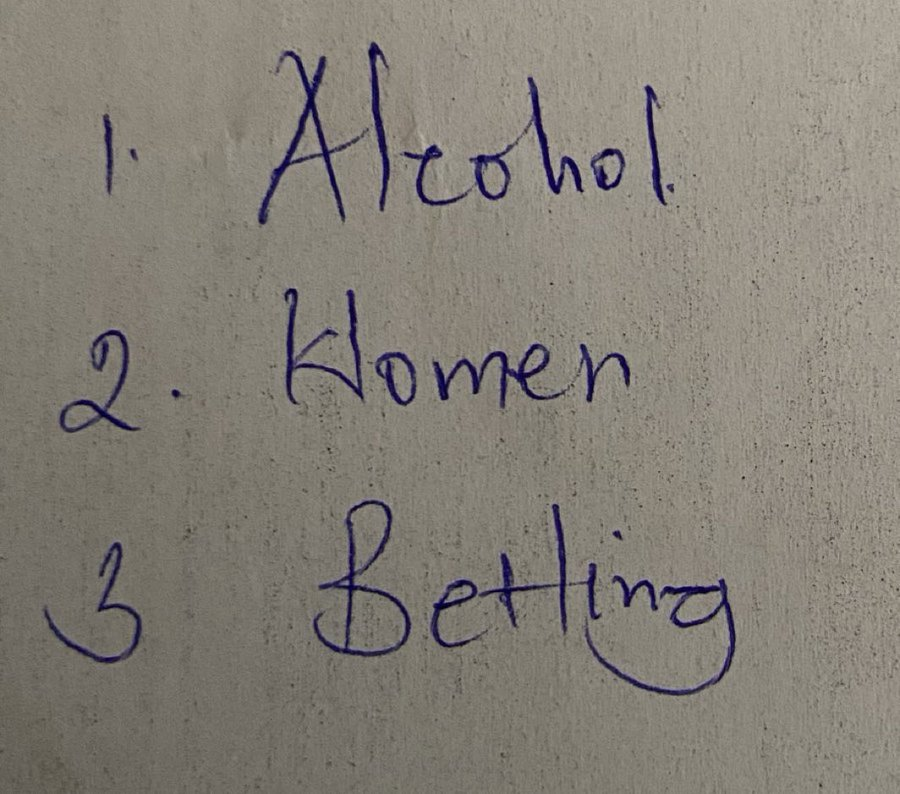 1. Alcohol.
2. Women
3 Betting